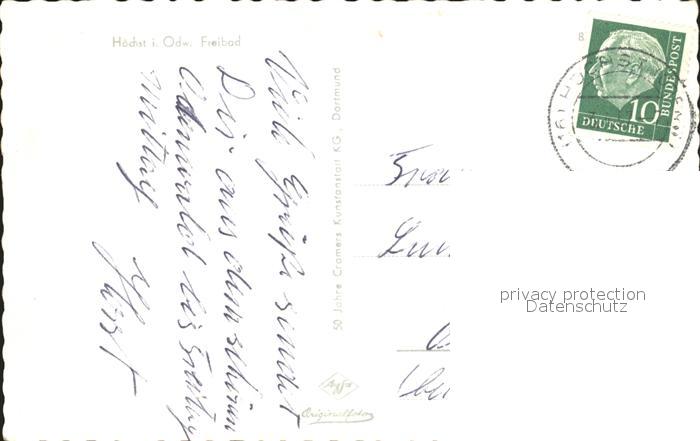 Höchst i. Odw. Freibad
8
Viele Grüße sendet
Dir aus dem schönen
Odenwald bis Freitag
Mittag
Horst
50 Jahre Cramers Kunstanstalt KG., Dortmund
Agfa
Originalfoto
DEUTSCHE
BUNDESPOST
10
Frau
privacy protection
Datenschutz